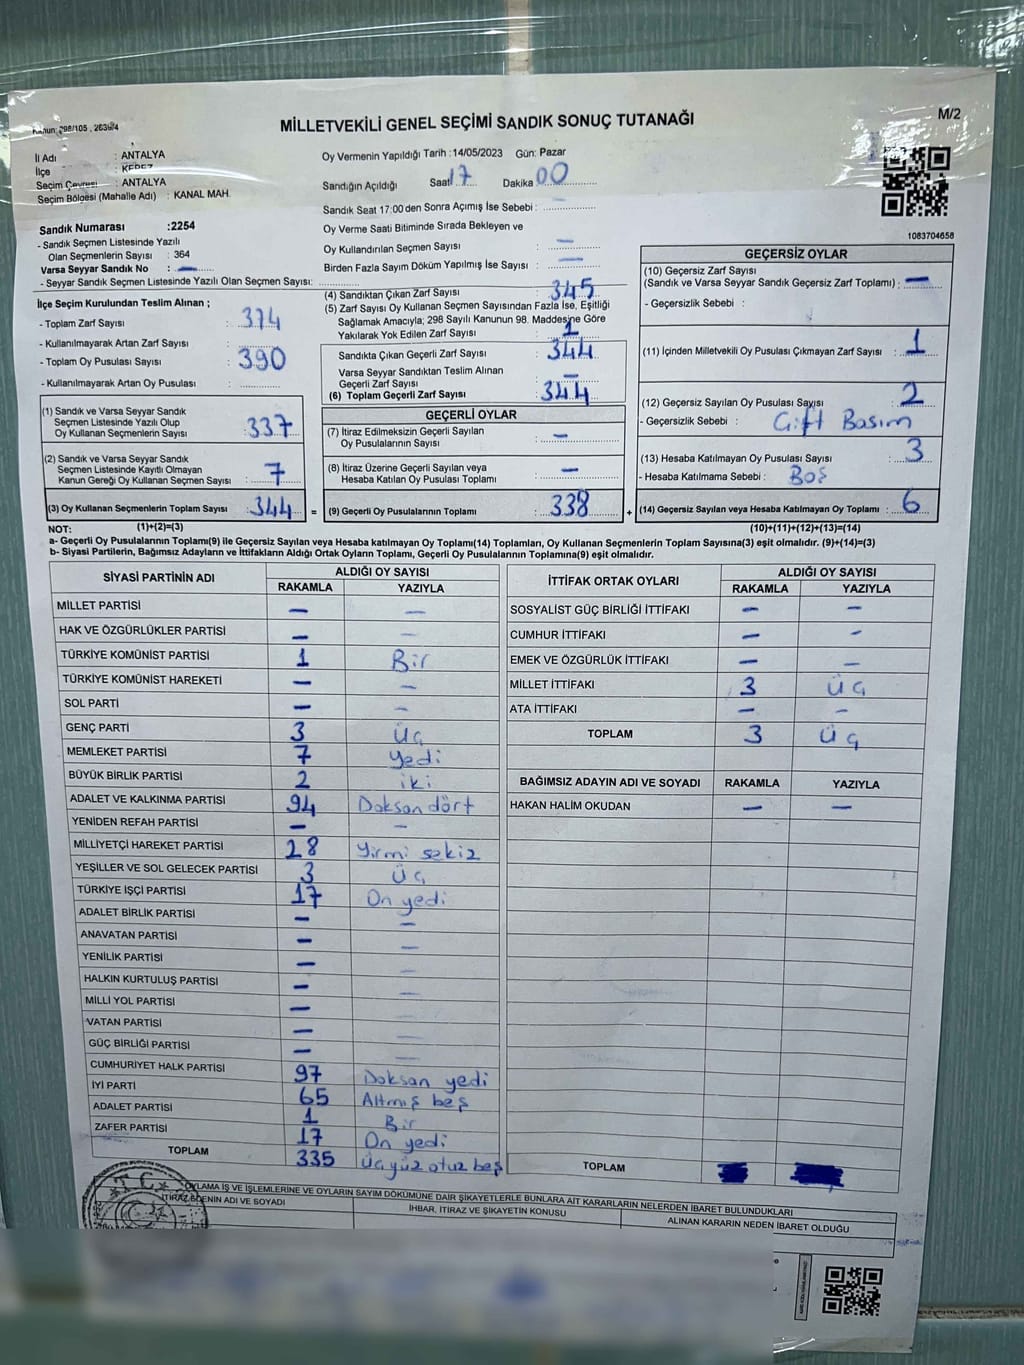 Kanun: 298/105 , 2839/4
MİLLETVEKİLİ GENEL SEÇİMİ SANDIK SONUÇ TUTANAĞI
M/2
İl Adı : ANTALYA
İlçe : KEPEZ
Seçim Çevresi : ANTALYA
Seçim Bölgesi (Mahalle Adı) : KANAL MAH.
Oy Vermenin Yapıldığı Tarih : 14/05/2023 Gün: Pazar
Sandığın Açıldığı Saat 17 Dakika 00
Sandık Saat 17:00 den Sonra Açımış İse Sebebi :
Oy Verme Saati Bitiminde Sırada Bekleyen ve
Oy Kullandırılan Seçmen Sayısı : —
Birden Fazla Sayım Döküm Yapılmış İse Sayısı : —
1083704658
Sandık Numarası :2254
- Sandık Seçmen Listesinde Yazılı
Olan Seçmenlerin Sayısı : 364
Varsa Seyyar Sandık No : —
- Seyyar Sandık Seçmen Listesinde Yazılı Olan Seçmen Sayısı:
İlçe Seçim Kurulundan Teslim Alınan ;
- Toplam Zarf Sayısı : 374
- Kullanılmayarak Artan Zarf Sayısı :
- Toplam Oy Pusulası Sayısı : 390
- Kullanılmayarak Artan Oy Pusulası :
(1) Sandık ve Varsa Seyyar Sandık
Seçmen Listesinde Yazılı Olup
Oy Kullanan Seçmenlerin Sayısı : 337
(2) Sandık ve Varsa Seyyar Sandık
Seçmen Listesinde Kayıtlı Olmayan
Kanun Gereği Oy Kullanan Seçmen Sayısı : 7
(3) Oy Kullanan Seçmenlerin Toplam Sayısı : 344 =
(4) Sandıktan Çıkan Zarf Sayısı : 345
(5) Zarf Sayısı Oy Kullanan Seçmen Sayısından Fazla İse, Eşitliği
Sağlamak Amacıyla; 298 Sayılı Kanunun 98. Maddesine Göre
Yakılarak Yok Edilen Zarf Sayısı : 1
Sandıkta Çıkan Geçerli Zarf Sayısı : 344
Varsa Seyyar Sandıktan Teslim Alınan
Geçerli Zarf Sayısı : —
(6) Toplam Geçerli Zarf Sayısı : 344
GEÇERLİ OYLAR
(7) İtiraz Edilmeksizin Geçerli Sayılan
Oy Pusulalarının Sayısı : —
(8) İtiraz Üzerine Geçerli Sayılan veya
Hesaba Katılan Oy Pusulası Toplamı : —
(9) Geçerli Oy Pusulalarının Toplamı : 338 +
GEÇERSİZ OYLAR
(10) Geçersiz Zarf Sayısı
(Sandık ve Varsa Seyyar Sandık Geçersiz Zarf Toplamı) : —
- Geçersizlik Sebebi :
(11) İçinden Milletvekili Oy Pusulası Çıkmayan Zarf Sayısı : 1
(12) Geçersiz Sayılan Oy Pusulası Sayısı : 2
- Geçersizlik Sebebi : Çift Basım
(13) Hesaba Katılmayan Oy Pusulası Sayısı : 3
- Hesaba Katılmama Sebebi : Boş
(14) Geçersiz Sayılan veya Hesaba Katılmayan Oy Toplamı : 6
NOT: (1)+(2)=(3)
(10)+(11)+(12)+(13)=(14)
a- Geçerli Oy Pusulalarının Toplamı(9) ile Geçersiz Sayılan veya Hesaba katılmayan Oy Toplamı(14) Toplamları, Oy Kullanan Seçmenlerin Toplam Sayısına(3) eşit olmalıdır. (9)+(14)=(3)
b- Siyasi Partilerin, Bağımsız Adayların ve İttifakların Aldığı Ortak Oyların Toplamı, Geçerli Oy Pusulalarının Toplamına(9) eşit olmalıdır.
SİYASİ PARTİNİN ADI
ALDIĞI OY SAYISI
RAKAMLA YAZIYLA
MİLLET PARTİSİ — —
HAK VE ÖZGÜRLÜKLER PARTİSİ — —
TÜRKİYE KOMÜNİST PARTİSİ 1 Bir
TÜRKİYE KOMÜNİST HAREKETİ — —
SOL PARTİ — —
GENÇ PARTİ 3 Üç
MEMLEKET PARTİSİ 7 Yedi
BÜYÜK BİRLİK PARTİSİ 2 iki
ADALET VE KALKINMA PARTİSİ 94 Doksan dört
YENİDEN REFAH PARTİSİ — —
MİLLİYETÇİ HAREKET PARTİSİ 28 Yirmi sekiz
YEŞİLLER VE SOL GELECEK PARTİSİ 3 Üç
TÜRKİYE İŞÇİ PARTİSİ 17 On yedi
ADALET BİRLİK PARTİSİ — —
ANAVATAN PARTİSİ — —
YENİLİK PARTİSİ — —
HALKIN KURTULUŞ PARTİSİ — —
MİLLİ YOL PARTİSİ — —
VATAN PARTİSİ — —
GÜÇ BİRLİĞİ PARTİSİ — —
CUMHURİYET HALK PARTİSİ 97 Doksan yedi
İYİ PARTİ 65 Altmış beş
ADALET PARTİSİ 1 Bir
ZAFER PARTİSİ 17 On yedi
TOPLAM 335 Üçyüz otuz beş
İTTİFAK ORTAK OYLARI
ALDIĞI OY SAYISI
RAKAMLA YAZIYLA
SOSYALİST GÜÇ BİRLİĞİ İTTİFAKI — —
CUMHUR İTTİFAKI — —
EMEK VE ÖZGÜRLÜK İTTİFAKI — —
MİLLET İTTİFAKI 3 Üç
ATA İTTİFAKI — —
TOPLAM 3 Üç
BAĞIMSIZ ADAYIN ADI VE SOYADI RAKAMLA YAZIYLA
HAKAN HALİM OKUDAN — —
TOPLAM
OYLAMA İŞ VE İŞLEMLERİNE VE OYLARIN SAYIM DÖKÜMÜNE DAİR ŞİKAYETLERLE BUNLARA AİT KARARLARIN NELERDEN İBARET BULUNDUKLARI
İTİRAZ EDENİN ADI VE SOYADI
İHBAR, İTİRAZ VE ŞİKAYETİN KONUSU
ALINAN KARARIN NEDEN İBARET OLDUĞU
T.C.